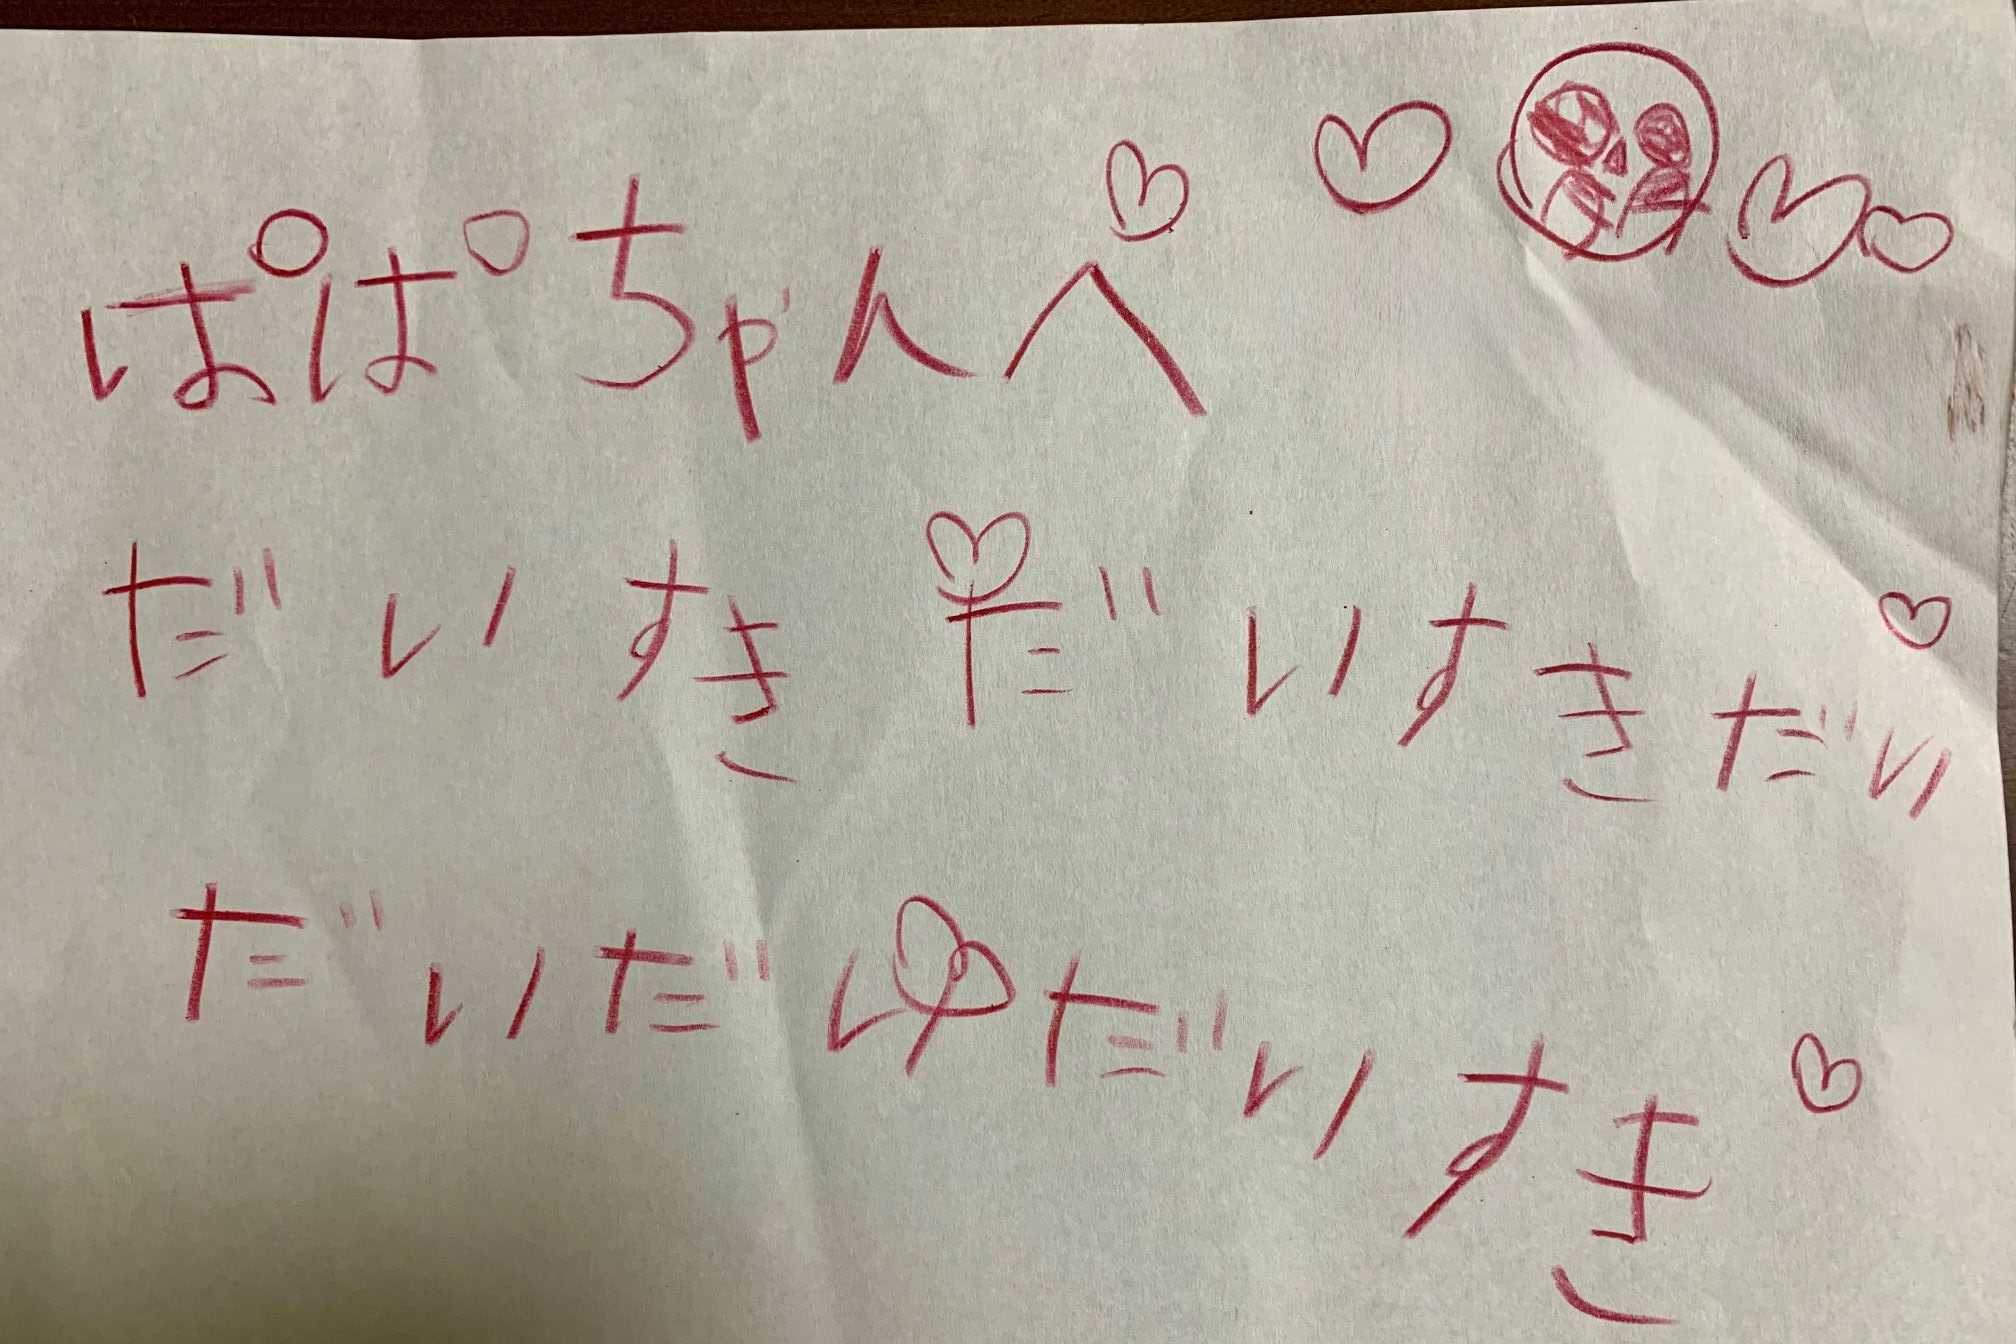 ぱぱちゃんへ
だいすきだいすきだい
だいだいだいすき